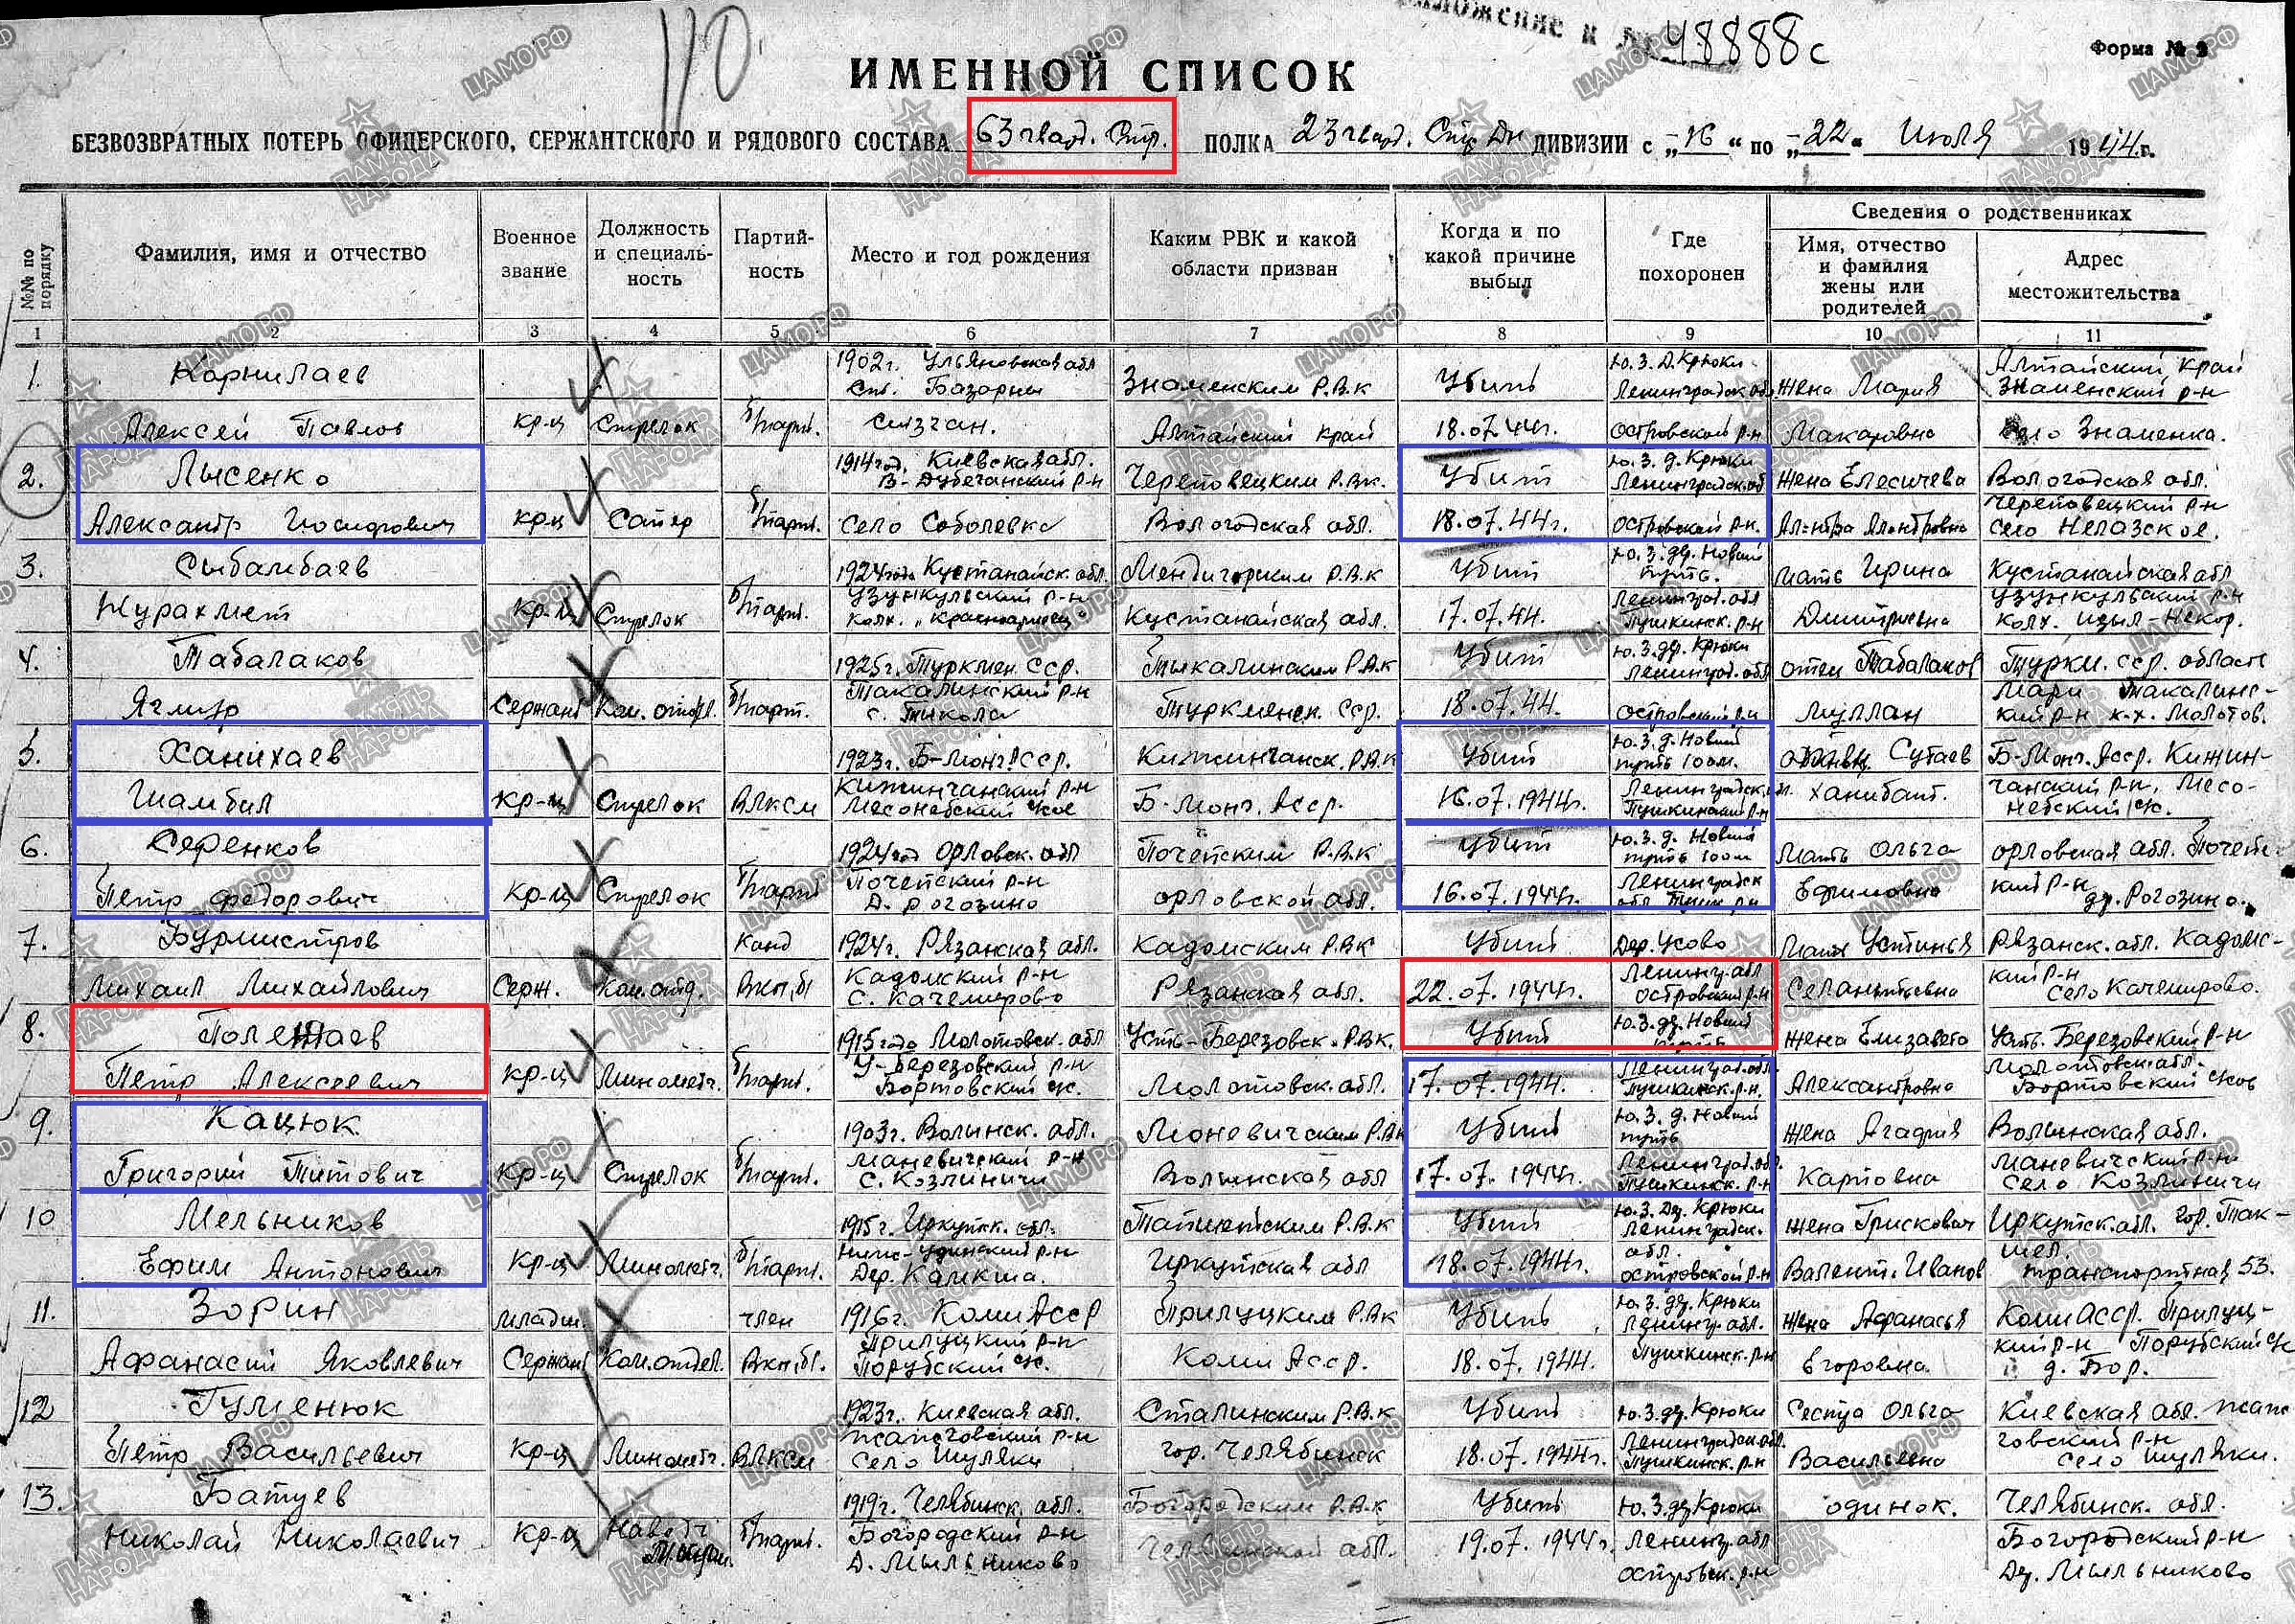 110
48888с
Форма № 2
ИМЕННОЙ СПИСОК
БЕЗВОЗВРАТНЫХ ПОТЕРЬ ОФИЦЕРСКОГО, СЕРЖАНТСКОГО И РЯДОВОГО СОСТАВА 63 гвард. Стр. ПОЛКА 23 гвард. Стр Дн ДИВИЗИИ с „16“ по „22“ Июля 1944 г.
№№ по порядку
Фамилия, имя и отчество
Военное звание
Должность и специаль-ность
Партий-ность
Место и год рождения
Каким РВК и какой области призван
Когда и по какой причине выбыл
Где похоронен
Сведения о родственниках
Имя, отчество и фамилия жены или родителей
Адрес местожительства
1 2 3 4 5 6 7 8 9 10 11
1. Корнилаев 1902г. Ульяновская обл Знаменским Р.В.к Убит Ю.З.Д.Крюки Ленинградск.обл Жена Мария Алтайский край Знаменский р-н
Алексей Павлов кр-ц Стрелок б/парт. Алтайский край 18.07.44г. Островской р-н Макаровна село Знаменка.
2. Лысенко 1914год. Киевская обл. Череповецким Р.Вк. Убит Ю.З.д.Крюки Ленинградск.об Жена Вологодская обл. Череповецкий р-н
Александр Иосифович кр-ц Сапер б/парт. село Соболевка Вологодская обл. 18.07.44г. Островской р-н. село Нелазское.
3. Сыбамбаев 1924года Кустанайск.обл. Мендигорским Р.В.к Убит Ю.З.др.Новый путь. Мать Ирина Кустанайская обл
Нурахмет кр-ц Стрелок б/парт. Узункульский р-н колх. „Красноармеец“ Кустанайская обл. 17.07.44. Ленинград.обл Пушкинск.р-н Дмитриевна Узункульский р-н
4. Табалаков 1925г. Туркмен ССР. Р.В.к Убит Ю.З.др.Крюки Ленинград.обл отец Табалаков Туркм.ССР. область
Ягмур Сержант Ком.отдел. б/парт. Такалинский р-н Туркменск. ССР. 18.07.44. Островский р-н Муллан Мари Такалинс-кий р-н к-х. Молотов.
5. Ханихаев 1923г. Б-Монг.АССР. Кижингинск.Р.В.к Убит Ю.З.д.Новый путь 100м. Сутаев Б-Монг.АССР. Кижин-
Шамбил кр-ц Стрелок ВЛКСМ Кижингинский р-н Б-Монг.АССР. 16.07.1944г. Ленинградск. Пушкинский р-н Ханибат.
6. Серенков 1924год Орловск.обл Почепским Р.В.к Убит Ю.З.д.Новый путь 100м Мать Ольга Орловская обл. Почеп-
Петр Федорович кр-ц Стрелок б/парт. Почепский р-н Д. Рогозино Орловской обл. 16.07.1944г. Ленинградск обл. Ефимовна кий р-н др.Рогозино.
7. Бурмистров Канд 1924г. Рязанская обл. Кадомским Р.В.К Убит Дер.Усово Мать Устинья Рязанск.обл. Кадомс-
Михаил Михайлович Серж. Ком.отд. ВКП/б/ Кадомский р-н С. Качемирово Рязанская обл. 22.07.1944г. Ленингр.обл Островский р-н кий р-н село Качемирово.
8. Полетаев 1915года Молотовск.обл Усть-Березовск.Р.ВК. Убит Ю.З.др.Новый путь Жена Елизавета Усть.Березовский р-н
Петр Алексеевич кр-ц Минометч. б/парт. У-Березовский р-н Бортовский с/с. Молотовск.обл. 17.07.1944. Ленинград.обл. Пушкинск.р-н. Александровна Молотовск.обл. Бортовский с/сов
9. Кацюк 1903г. Волынск.обл. Моневичским Р.Вк Убит Ю.З.д.Новый путь Жена Агафия Волынская обл.
Григорий Титович кр-ц Стрелок б/парт. Маневичский р-н С. Козлиничи Волынская обл 17.07.1944г. Ленинград.обл. Пушкинск.р-н Карповна Маневичский р-н Село Козлиничи
10 Мельников 1915г. Иркутск.обл. Тайшетским Р.В.к Убит Ю.З.Др.Крюки Ленинградск. Жена Грискович Иркутск.обл. гор.Тай-
Ефим Антонович кр-ц Минометч. б/парт. Дер. Камкша. Иркутская обл 18.07.1944г. обл. островской р-н Валент.Иванов шет. транспортная 53.
11. Зорин Младш. член 1916г. Коми АССР Прилуцким Р.В.к Убит Ю.З.др.Крюки Ленингр.обл. Жена Афанасья Коми АССР. Прилуц-
Афанасий Яковлевич Сержант Ком.отдел. ВКП/б/. Прилуцкий р-н Порубский с/с. Коми АССР. 18.07.1944. Пушкинск.р-н Егоровна. кий р-н Порубский с/с д. Бор.
12 Гуменюк 1923г. Киевская обл. Сталинским Р.В.к Убит Ю.З.др.Крюки Сестра Ольга Киевская обл.
Петр Васильевич кр-ц Минометч. ВЛКСМ село Шуляки гор. Челябинск 18.07.1944г. Ленинградск.обл. Пушкинск.р-н Васильевна говский р-н село Шуляки.
13. Батуев 1919г. Челябинск.обл. Богородским Р.В.к Убит Ю.З.др.Крюки одинок. Челябинск.обл.
Николай Николаевич кр-ц б/парт. Богородский р-н Д. Мыльниково Челябинской обл. 19.07.1944г. Ленингр.обл Островск.р-н Богородский р-н Др. Мыльниково